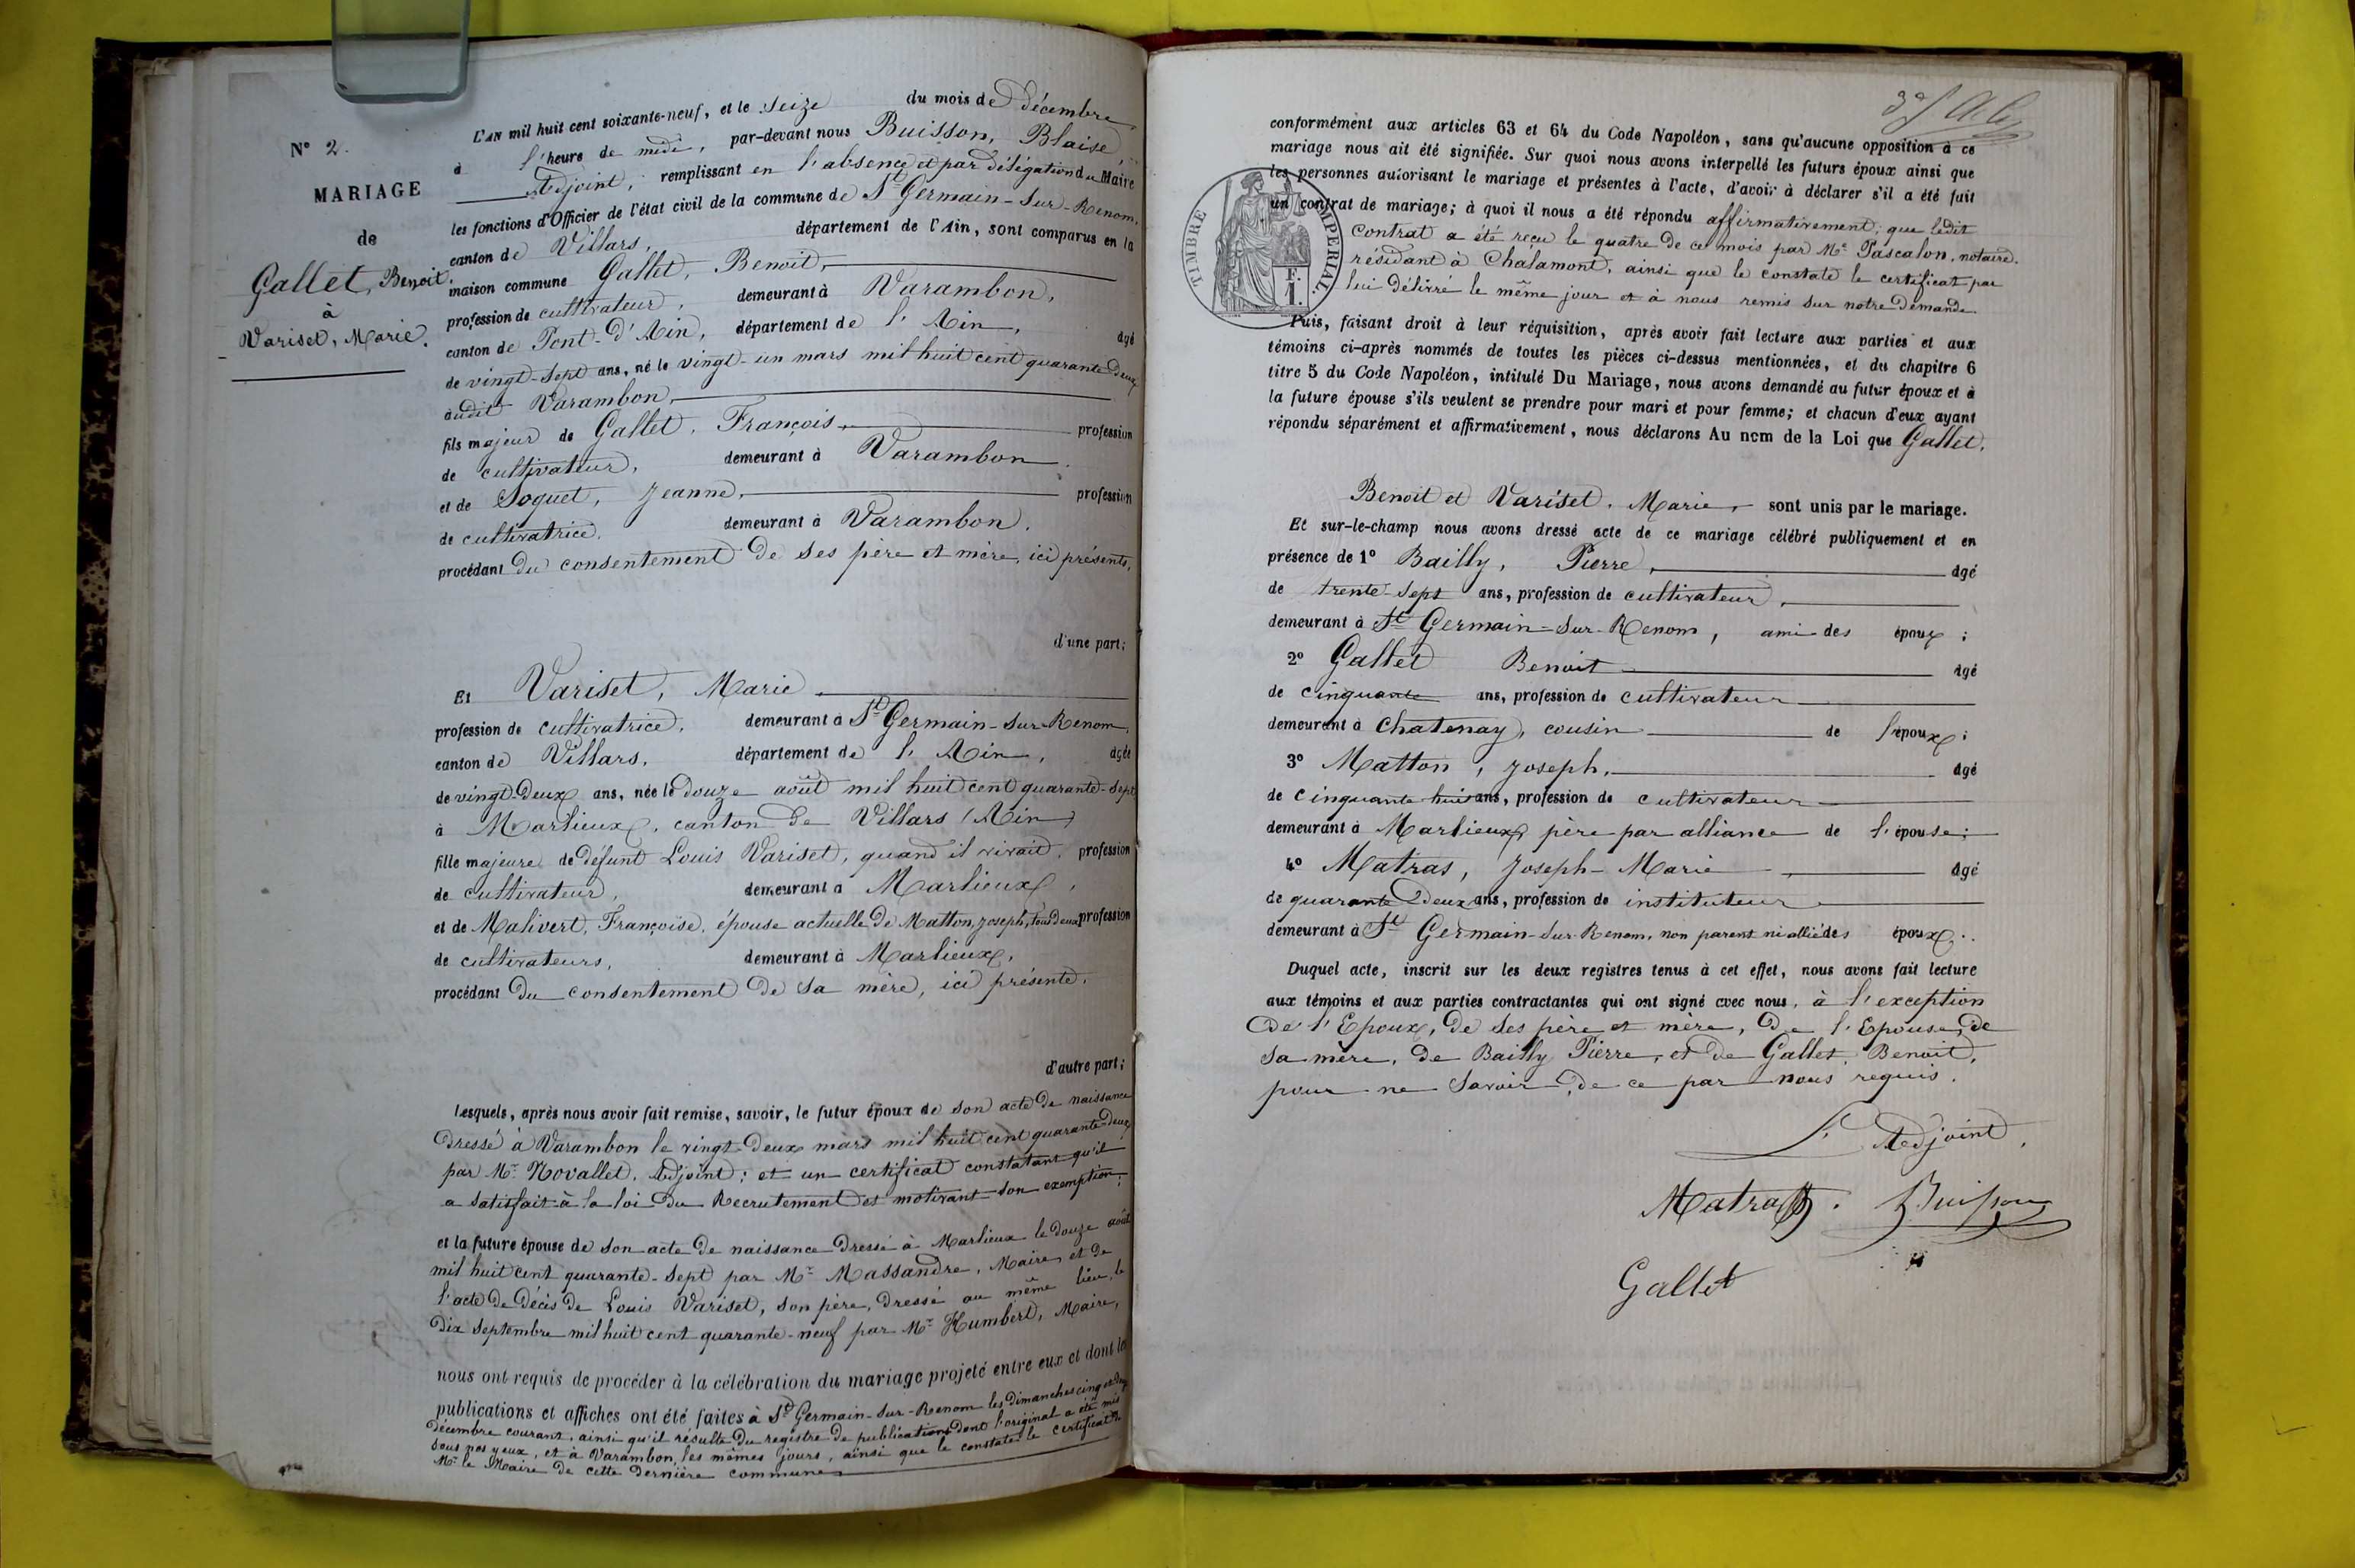 N° 2.
MARIAGE
de
Gallet, Benoit.
à
Variset, Marie.
L'AN mil huit cent soixante-neuf, et le seize du mois de Décembre,
à l'heure de midi, par-devant nous Buisson, Blaise,
Adjoint, remplissant en l'absence et par délégation du Maire
les fonctions d'Officier de l'état civil de la commune de St Germain-sur-Renom,
canton de Villars, département de l'Ain, sont comparus en la
maison commune Gallet, Benoit,
profession de cultivateur, demeurant à Varambon,
canton de Pont-d'Ain, département de l'Ain, âgé
de vingt-sept ans, né le vingt-un mars mil huit cent quarante-deux
audit Varambon,
fils majeur de Gallet, François, profession
de cultivateur, demeurant à Varambon.
et de Soquet, Jeanne, profession
de cultivatrice, demeurant à Varambon.
procédant du consentement de ses père et mère, ici présents,
d'une part;
Et Variset, Marie,
profession de cultivatrice, demeurant à St Germain-sur-Renom,
canton de Villars, département de l'Ain, âgée
de vingt-deux ans, née le douze août mil huit cent quarante-sept
à Marlieux, canton de Villars (Ain)
fille majeure de défunt Louis Variset, quand il vivait, profession
de cultivateur, demeurant à Marlieux,
et de Malivert, Françoise, épouse actuelle de Matton, Joseph, tous deux profession
de cultivateurs, demeurant à Marlieux,
procédant du consentement de sa mère, ici présente,
d'autre part;
Lesquels, après nous avoir fait remise, savoir, le futur époux de son acte de naissance
dressé à Varambon le vingt-deux mars mil huit cent quarante-deux
par Mr Novallet, Adjoint; et un certificat constatant qu'il
a satisfait à la loi du Recrutement et motivant son exemption;
et la future épouse de son acte de naissance dressé à Marlieux le douze août
mil huit cent quarante-sept par Mr Massandre, Maire, et de
l'acte de décès de Louis Variset, son père, dressé au même lieu, le
dix septembre mil huit cent quarante-neuf par Mr Humbert, Maire,
nous ont requis de procéder à la célébration du mariage projeté entre eux et dont les
publications et affiches ont été faites à St Germain-sur-Renom les dimanches cinq et douze
décembre courant, ainsi qu'il résulte du registre de publications dont l'original a été mis
sous nos yeux, et à Varambon, les mêmes jours, ainsi que le constate le certificat de
Mr le Maire de cette dernière commune
conformément aux articles 63 et 64 du Code Napoléon, sans qu'aucune opposition à ce
mariage nous ait été signifiée. Sur quoi nous avons interpellé les futurs époux ainsi que
les personnes autorisant le mariage et présentes à l'acte, d'avoir à déclarer s'il a été fait
un contrat de mariage; à quoi il nous a été répondu affirmativement; que ledit
contrat a été reçu le quatre de ce mois par Me Pascalon, notaire.
résidant à Chalamont, ainsi que le constate le certificat par
lui délivré le même jour et à nous remis sur notre demande
TIMBRE IMPERIAL.
1 F.
Puis, faisant droit à leur réquisition, après avoir fait lecture aux parties et aux
témoins ci-après nommés de toutes les pièces ci-dessus mentionnées, et du chapitre 6
titre 5 du Code Napoléon, intitulé Du Mariage, nous avons demandé au futur époux et à
la future épouse s'ils veulent se prendre pour mari et pour femme; et chacun d'eux ayant
répondu séparément et affirmativement, nous déclarons Au nom de la Loi que Gallet,
Benoit et Variset, Marie, sont unis par le mariage.
Et sur-le-champ nous avons dressé acte de ce mariage célébré publiquement et en
présence de 1° Bailly, Pierre, âgé
de trente-sept ans, profession de cultivateur,
demeurant à St Germain-sur-Renom, ami des époux;
2° Gallet Benoit âgé
de cinquante ans, profession de cultivateur
demeurant à Chatenay, cousin de l'époux;
3° Matton, Joseph, âgé
de cinquante huit ans, profession de cultivateur
demeurant à Marlieux, père par alliance de l'épouse;
4° Matras, Joseph-Marie, âgé
de quarante deux ans, profession de instituteur
demeurant à St Germain-sur-Renom, non parent ni allié des époux.
Duquel acte, inscrit sur les deux registres tenus à cet effet, nous avons fait lecture
aux témoins et aux parties contractantes qui ont signé avec nous, à l'exception
de l'Epoux, de ses père et mère, de l'Epouse, de
sa mère, de Bailly Pierre, et de Gallet, Benoit,
pour ne savoir, de ce par nous requis.
L'Adjoint,
Matras. Buisson
Gallet